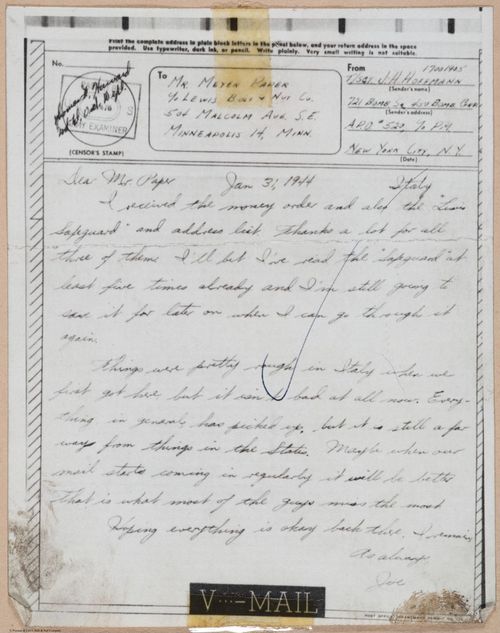 Print the complete address in plain block letters in the panel below, and your return address in the space
provided. Use typewriter, dark ink, or pencil. Write plainly. Very small writing is not suitable.
No.
ARMY EXAMINER
(CENSOR'S STAMP)
To
MR. MEYER PAPER
% LEWIS BOLT & NUT CO.
504 MALCOLM AVE. S.E.
MINNEAPOLIS 14, MINN.
From
T/SGT. J.H. HOFFMANN
(Sender's name)
721 BOMB SQ 450 BOMB GRP
(Sender's address)
A.P.O. # 520, % P.M.
NEW YORK CITY, N.Y.
(Date)
Dear Mr. Paper Jan 31, 1944 Italy
I recived the money order and also the "Lewis
Safeguard" and address list. Thanks a lot for all
three of them. I'll bet I've read the "Safeguard" at
least five times already and I'm still going to
save it for later on when I can go through it
again.
Things were pretty rough in Italy when we
first got here but it isn't bad at all now. Every-
thing in general has picked up, but it is still a far
ways from things in the States. Maybe when our
mail starts coming in regularly it will be better
that is what most of the guys miss the most
Hoping everything is okay back there, I remain
As always
Joe
V···—MAIL